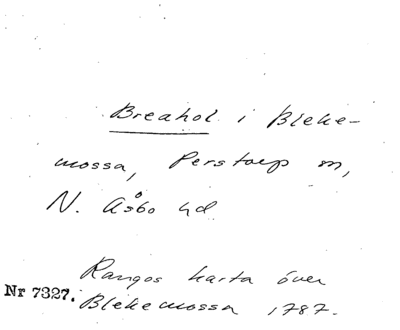 Breahol i Bleke-
mossa, Perstorp m,
N. Åsbo hd
Rangos karta över
Nr 7327. Blekemossa 1787.